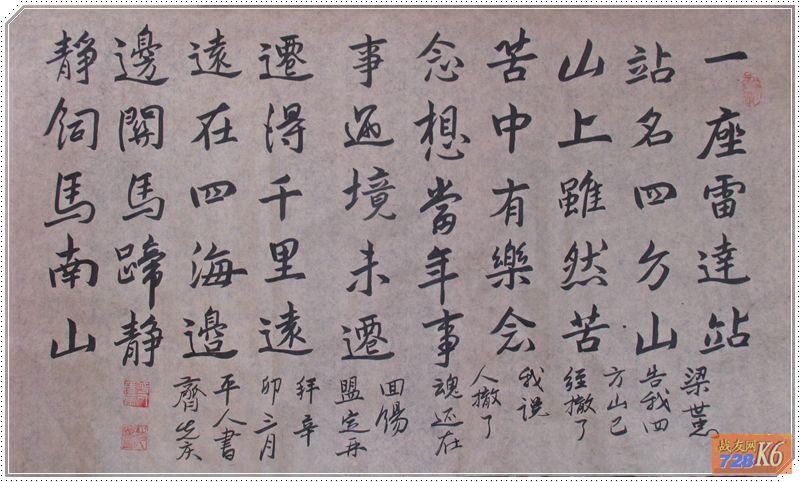 一座雷達站
站名四方山
山上雖然苦
苦中有樂念
念想當年事
事過境未遷
遷得千里遠
遠在四海邊
邊關馬蹄靜
靜飼馬南山
梁世
告我四
方山已
经撤了
我说
人撤了
魂还在
回
盟定再
拜辛
卯三月
平人書
齊
战友网
728 K6